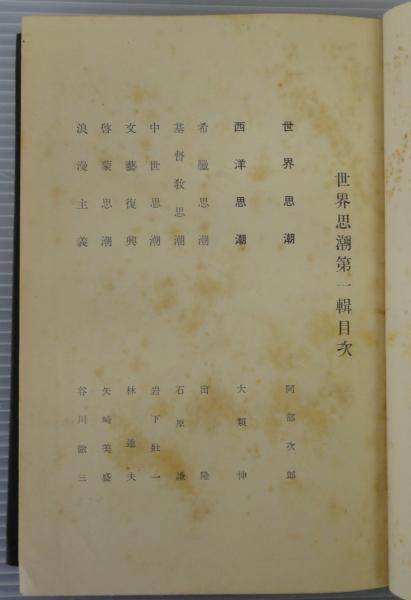 世界思潮第一輯目次
世界思潮 阿部次郎
西洋思潮 大類伸
希臘思潮 出隆
基督敎思潮 石原謙
中世思潮 岩下壯一
文藝復興 林達夫
啓蒙思潮 矢崎美盛
浪漫主義 谷川徹三